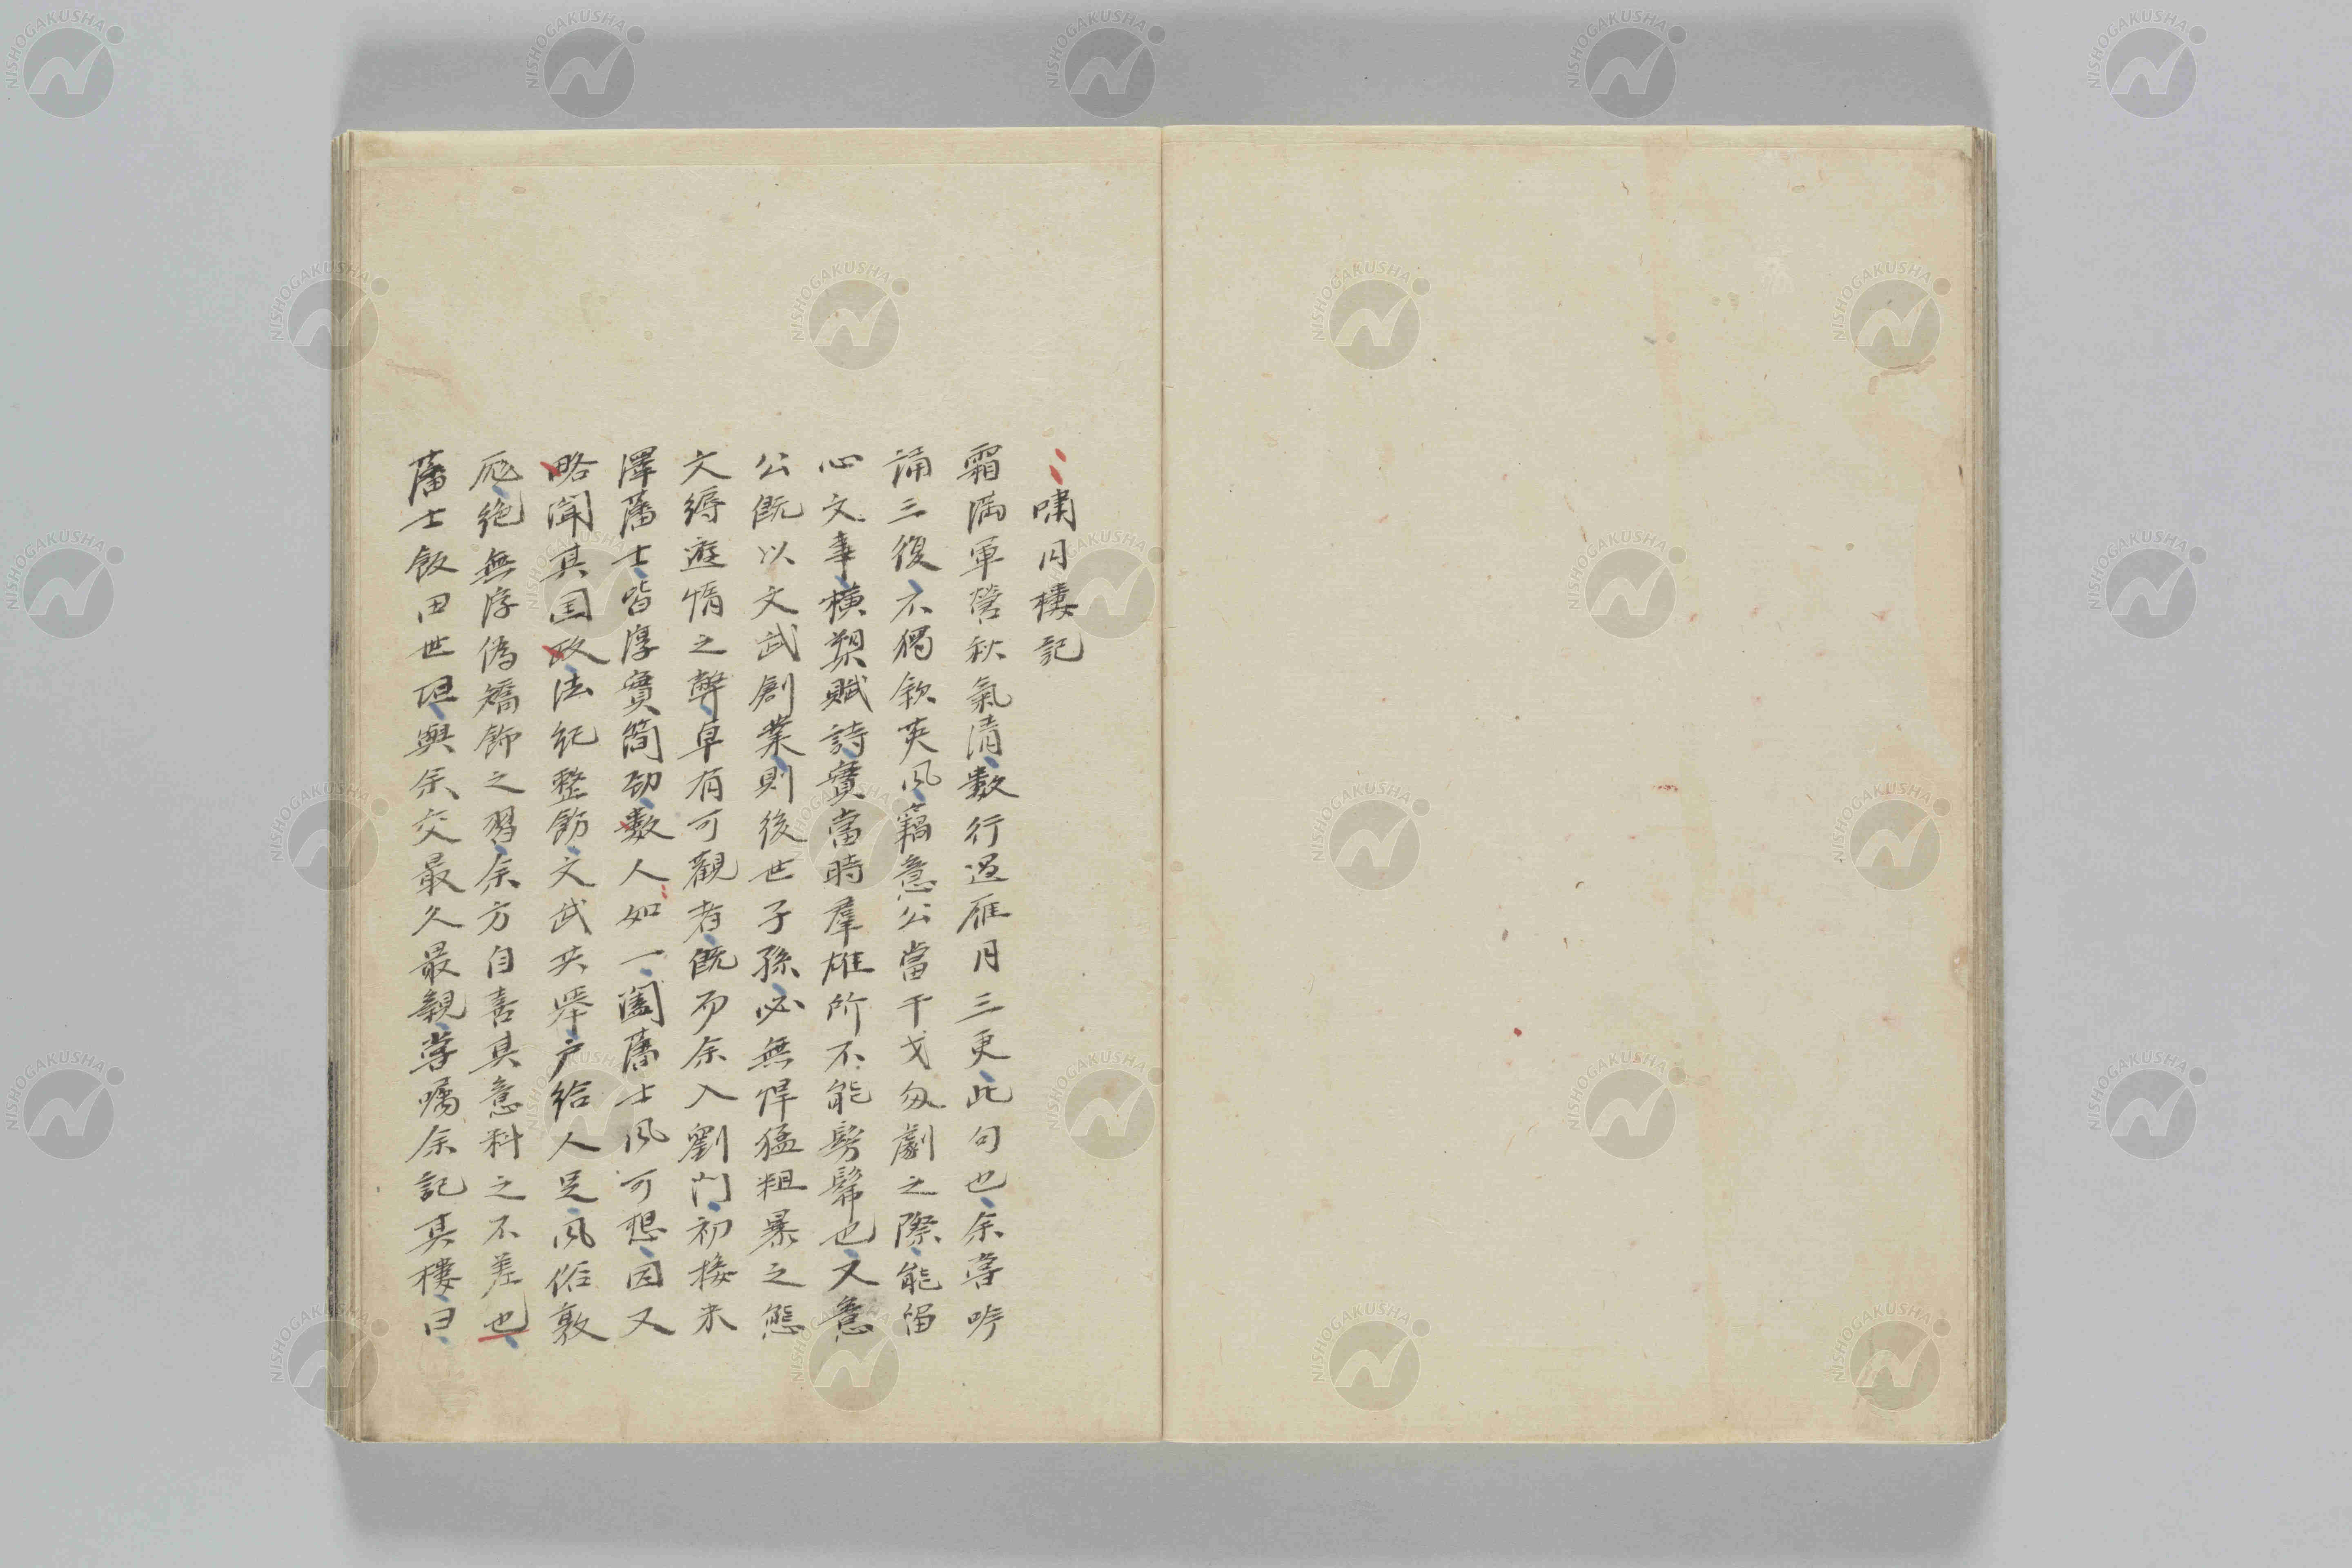 嘯月樓記
霜滿軍營秋氣清數行過雁月三更此句也余嘗吟
誦三復不獨欽英風竊意公當干戈匆劇之際能留
心文事橫槊賦詩實當時羣雄所不能髣髴也又意
公既以文武創業則後世子孫必無悍猛粗暴之態
文縟遊惰之弊卓有可觀者既而余入劉門初接米
澤藩士皆厚實簡劭數人如一闔藩士風可想因又
略聞其国政法紀整飭文武共舉戶給人足風俗敦
厖絶無浮偽矯飾之習余方自喜其意料之不差也
藩士飯田世琨與余交最久最親嘗囑余記其樓曰
NISHOGAKUSHA